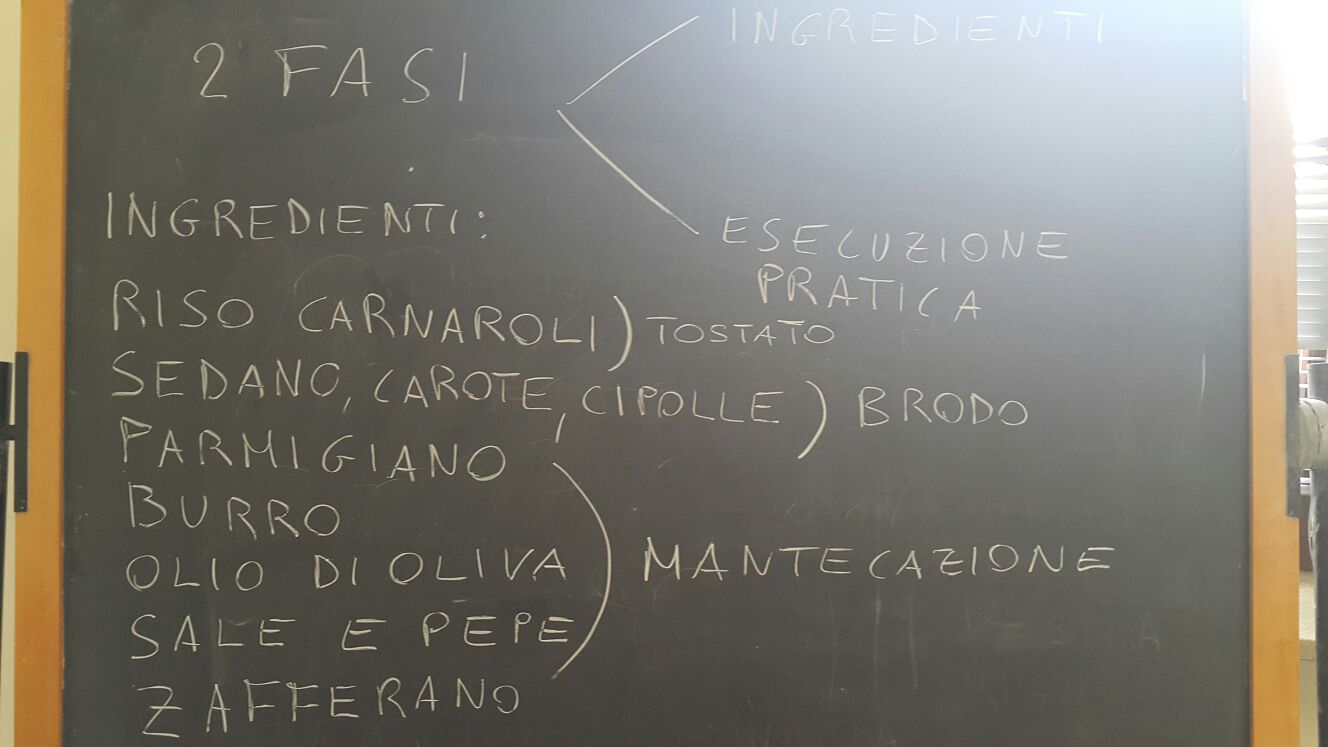 2 FASI
INGREDIENTI
ESECUZIONE
PRATICA
INGREDIENTI:
RISO CARNAROLI) TOSTATO
SEDANO, CAROTE, CIPOLLE) BRODO
PARMIGIANO
BURRO
OLIO DI OLIVA) MANTECAZIONE
SALE E PEPE
ZAFFERANO